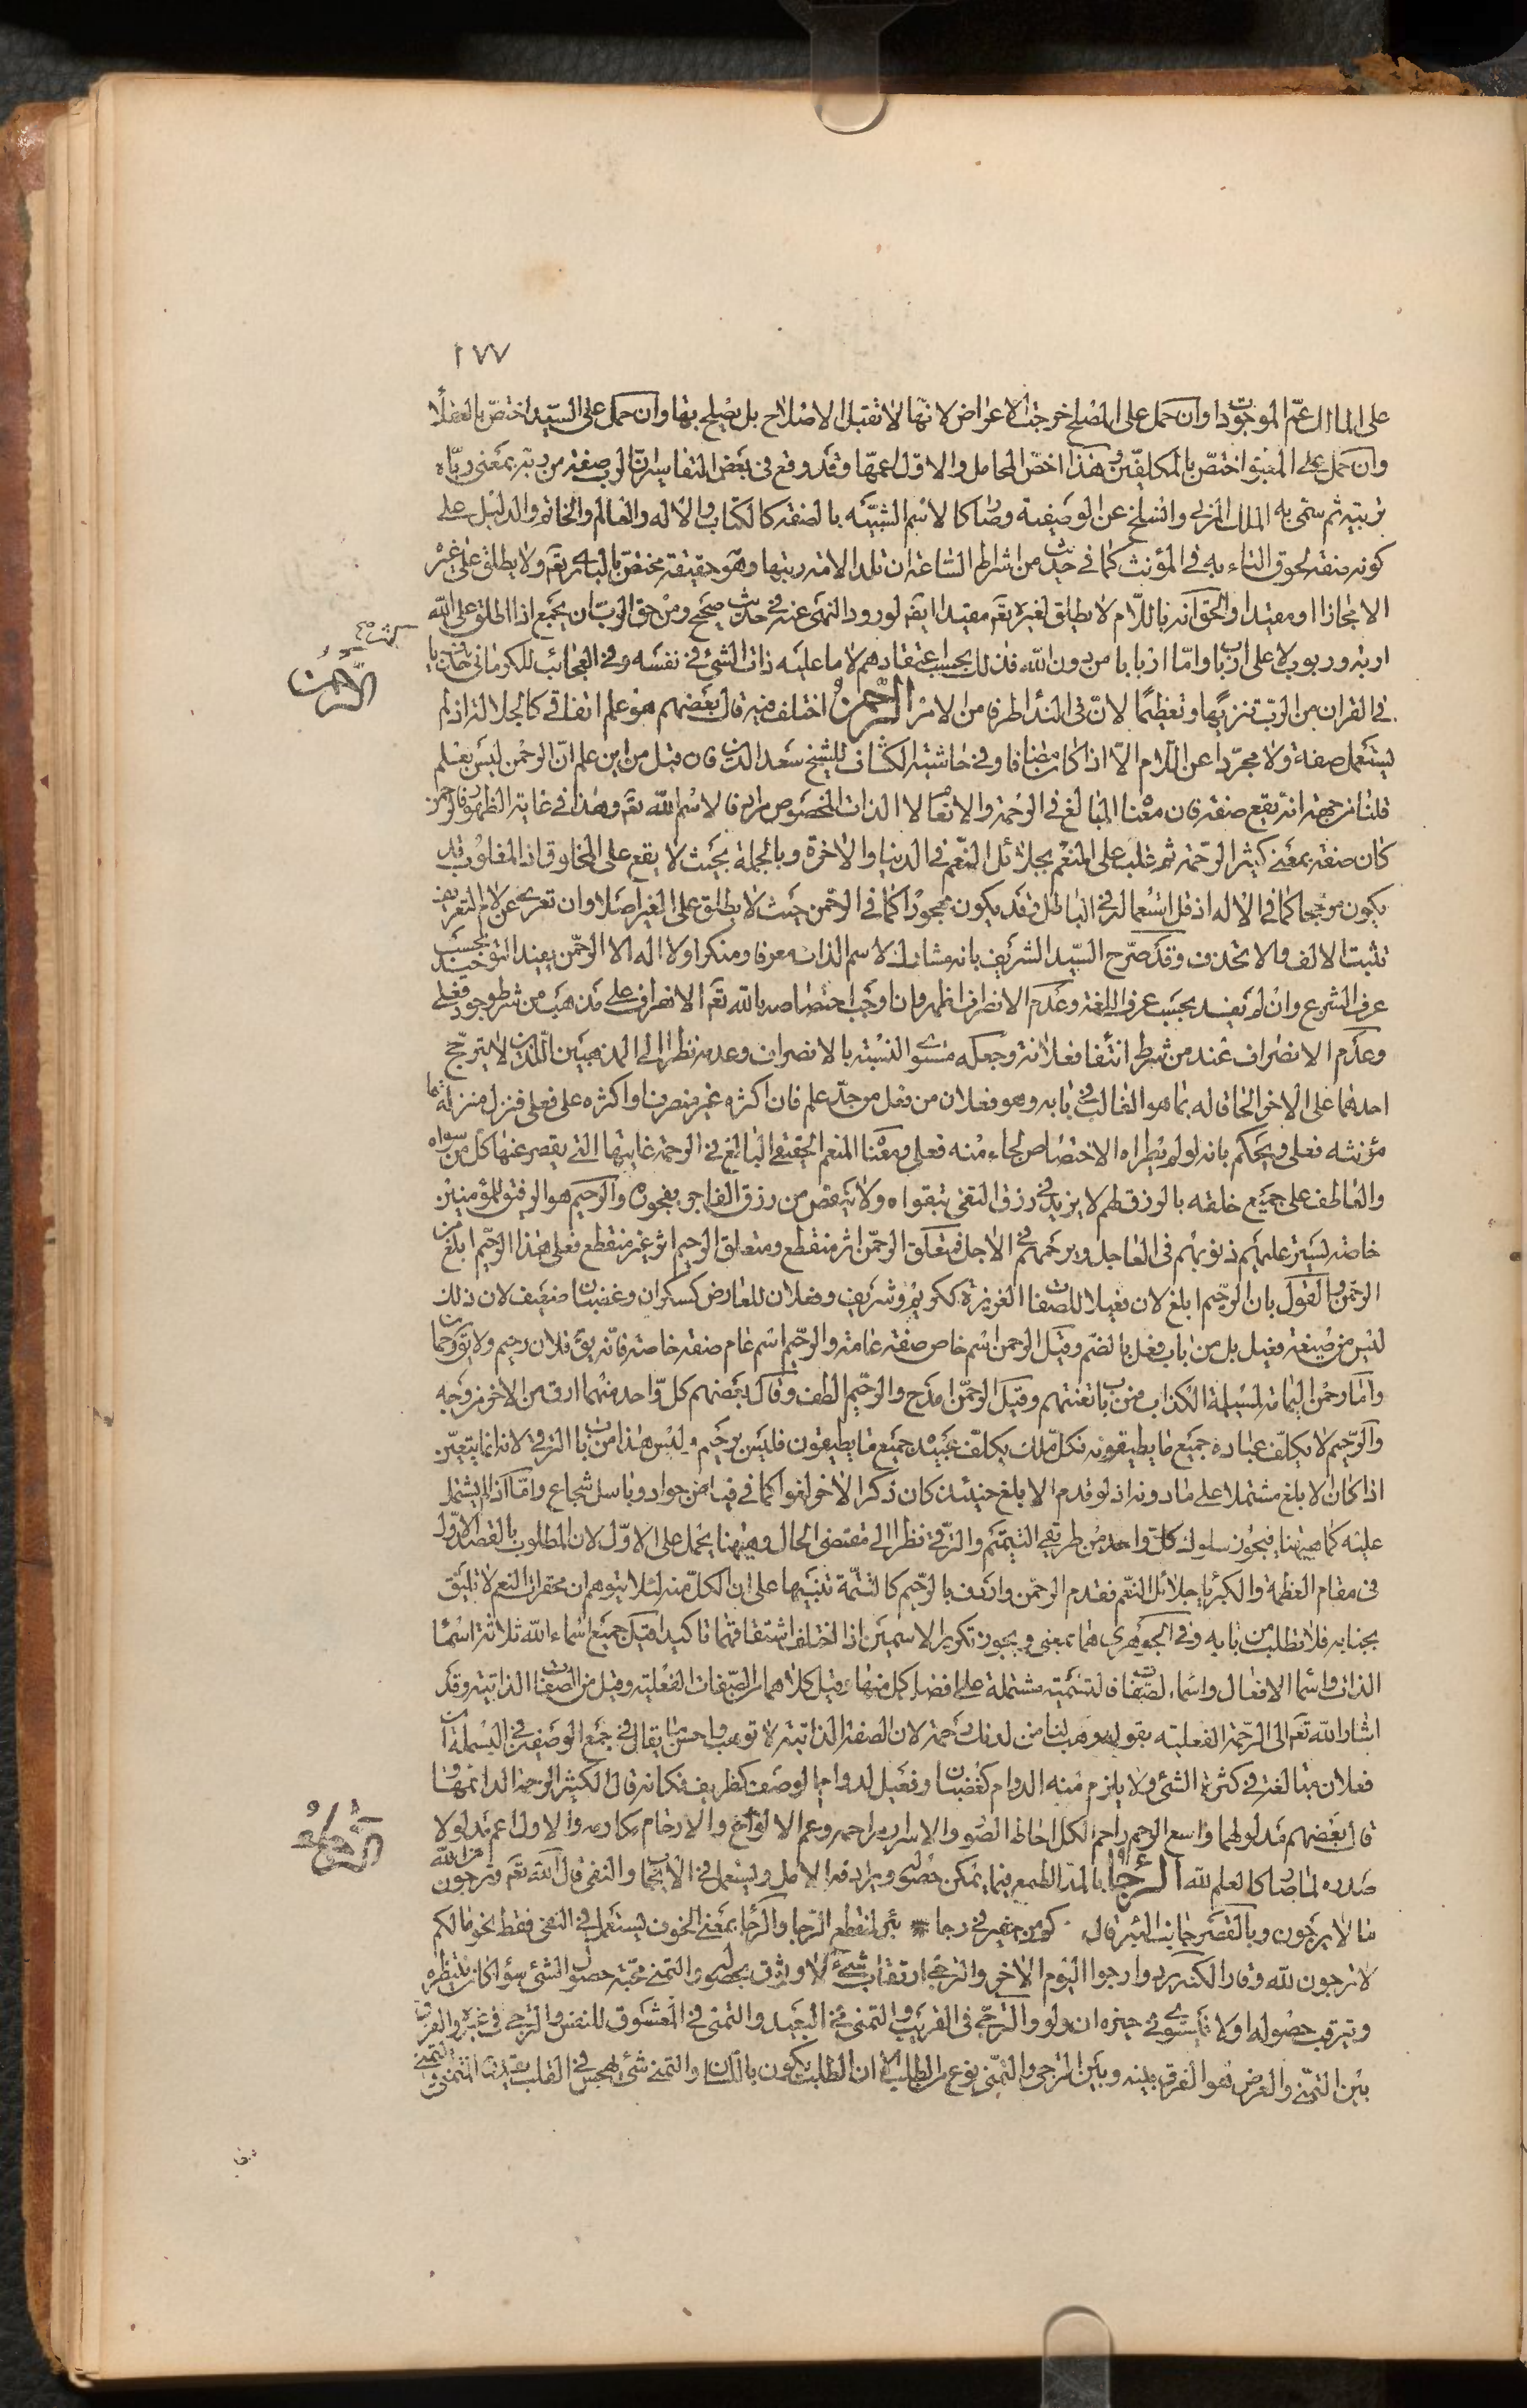 ١٧٧
على المالك عمّ الموجودات وان حمل على المصلح خرجت الاعراض لانها لا تقبل الاصلاح بل يصلح بها وان حمل على السيد اختصّ بالعقلا
وان حمل على المعبود اختصّ بالمكلفين وهذا اخصّ المحامل والاول اعمّها وقد وقع فى بعض التفاسير ان الرب صفة من ربه بمعنى ربّاه
تربية ثم سمّى به المالك المربى وانسلخ عن الوصفية وصار كالاسم الشبيه بالصفة كالكتاب والاله والعالم والخاتم والدليل على
كونه صفة لحوق التاء به فى المؤنث كما فى حديث من اشراط الساعة ان تلد الامة ربتها وهو حقيقة مختصّ بالبارى تعم ولا يطلق على غيره
الا مجازا او مقيدا والحق انه باللّام لا يطلق لغيره تعم مقيدا ايضا لورود النهى عنه فى حديث صحيح ومن حق الرب ان يجمع اذا اطلق على الله
اربة وربوب لا على ارباب واما اربابا من دون الله فذلك بحسب اعتقادهم لا ما عليه ذات الشئ فى نفسه وفى العجائب للكرمانى حذف يا
فى القران من الرب تنزيها وتعظيما لان فى الندا طرفا من الامر الرّحمن اختلف فيه قال بعضهم هو علم اتفاقى كالجلالة اذ لم
يستعمل صفة ولا مجردا عن اللام الا اذا كان مضافا وفى حاشية الكشاف للشيخ سعد الدين فان قيل من اين علم ان الرحمن ليس بعلم
قلنا من جهة انه يقع صفة فان معناه المبالغ فى الرحمة والانعام لا الذات المخصوص مرادفا لاسم الله تعم وهذا فى غاية الظهور فالرحمن
كان صفة بمعنى كثير الرحمة ثم غلب على المنعم بجلائل النعم فى الدنيا والاخرة وبالجملة بحيث لا يقع على المخلوق اذ المغلوب قد
يكون مرجوحا كما فى الاله اذ قل استعماله فى الباطل وقد يكون مهجورا كما فى الرحمن حيث لا يطلق على الغير اصلا وان تعرى عن لام التعريف
تثبت الالف والا تحذف وقد صرّح السيد الشريف بانه مشارك لاسم الذات معرفا ومنكرا ولا اله الا الرحمن يفيد التوحيد بحسب
عرف الشرع وان لم يفد بحسب عرف اللغة وعدم الانصراف اظهر وان اوجب اختصاصه بالله تعم الانصراف على مذهب من شرط وجود فعلى
وعدم الانصراف عند من شرط انتفا فعلانة وجعله مستوى النسبة بالانصراف وعدمه نظرا الى المذهبين اللذين لا يترجح
احدهما على الاخر الحاقا له بما هو الغالب فى بابه وهو فعلان من فعل من حدّ علم فان اكثره غير منصرف او اكثره على فعلى فنزل منزلة ما
مؤنثه فعلى ويحكم بانه لو لم يطراه الاختصاص لجاء منه فعلى ومعناه المنعم الحقيقى البالغ فى الرحمة غايتها التى يقصر عنها كل من سواه
والعاطف على جميع خلقه بالرزق لهم لا يزيد فى رزق التقى بتقواه ولا ينقص من رزق الفاجر بفجوره والرحيم هو الرفيق للمؤمنين
خاصة يستر عليهم ذنوبهم فى العاجل ويرحمهم فى الاجل فمتعلق الرحمن اثر منقطع ومتعلق الرحيم اثر غير منقطع فعلى هذا الرحيم ابلغ من
الرحمن والقول بان الرحيم ابلغ لان فعيلا للصفات الغريزة ككريم وشريف وفعلان للعارض كسكران وغضبان ضعيف لان ذلك
ليس من صيغة فعيل بل من باب فعل بالضم وقيل الرحمن اسم خاص صفة عامة والرحيم اسم عام صفة خاصة فانه يق فلان رحيم ولا يق رحمان
واما رحمن اليمامة لمسيلمة الكذاب فمن باب تعنتهم وقيل الرحمن امدح والرحيم الطف وقال بعضهم كل واحد منهما ارق من الاخر من وجه
والرحيم لا يكلف عباده جميع ما يطيقونه فكل ملك يكلف عبيده جميع ما يطيقون فليس برحيم وليس هذا من باب الترقى لانه انما يتعين
اذا كان الابلغ مشتملا على ما دونه اذ لو قدم الابلغ حينئذ كان ذكر الاخر لغوا كما فى فياض جواد وباسل شجاع واما اذا لم يشتمل
عليه كما هيهنا فيجوز سلوك كل واحد من طريقى التتميم والترقى نظرا الى مقتضى الحال وهيهنا يحمل على الاول لان المطلوب بالقصد الاول
فى مقام العظمة والكبريا جلائل النعم فقدم الرحمن واردف بالرحيم كالتتمة تنبيها على ان الكل منه لئلا يتوهم ان محقرات النعم لا تليق
بجنابه فلا تطلب من بابه وفى الجوهرى هما بمعنى ويجوز تكرير الاسمين اذا اختلف اشتقاقهما تاكيدا قيل جميع اسماء الله ثلاثة اسما
الذات واسما الافعال واسماء الصفات فالتسمية مشتملة على افضل كل منها وقيل كلاهما من الصفات الفعلية وقيل من الصفات الذاتية وقد
اشار الله تعم الى الرحمة الفعلية بقوله وهب لنا من لدنك رحمة لان الصفة الذاتية لا توهب واحسن ما يقال فى جمع الوصفين فى البسملة ان
فعلان مبالغة فى كثرة الشئ ولا يلزم منه الدوام كغضبان وفعيل لدوام الوصف كظريف فكانه قال الكثير الرحمة الدائمها
قال بعضهم مدلولهما واسع الرحم راحم الكل احاط الصور والاسرار مراحمه وعم الالواح والارحام مكارمه والاول اعم مدلولا
صدره لما صار كالعلم لله الرّجا بالمد الطمع فيما يمكن حصوله ويرادفه الامل ويستعمل فى الايجاب والنفى قال الله تعم وترجون من الله
ما لا يرجون وبالقصر جانب البئر قال كم من حفير فى رجا * بئر لمنقطع الرجا والرجا بمعنى الخوف يستعمل فى النفى فقط نحو ما لكم
لا ترجون لله وقارا لكنه يرد وارجوا اليوم الاخر والترجى ارتقاب شئ لا وثوق بحصوله والتمنى محبة حصول الشئ سوا كان ينتظره
ويترقب حصوله او لا والترجى فى القريب والتمنى فى البعيد والتمنى فى المعشوق للنفس والترجى فى غيره والفرق
بين التمنى والعرض هو الفرق بينه وبين الترجى والتمنى نوع من الطلب الا ان الطلب يكون باللسان والتمنى شئ يهجس فى القلب يقدره المتمنى
الرّحمن